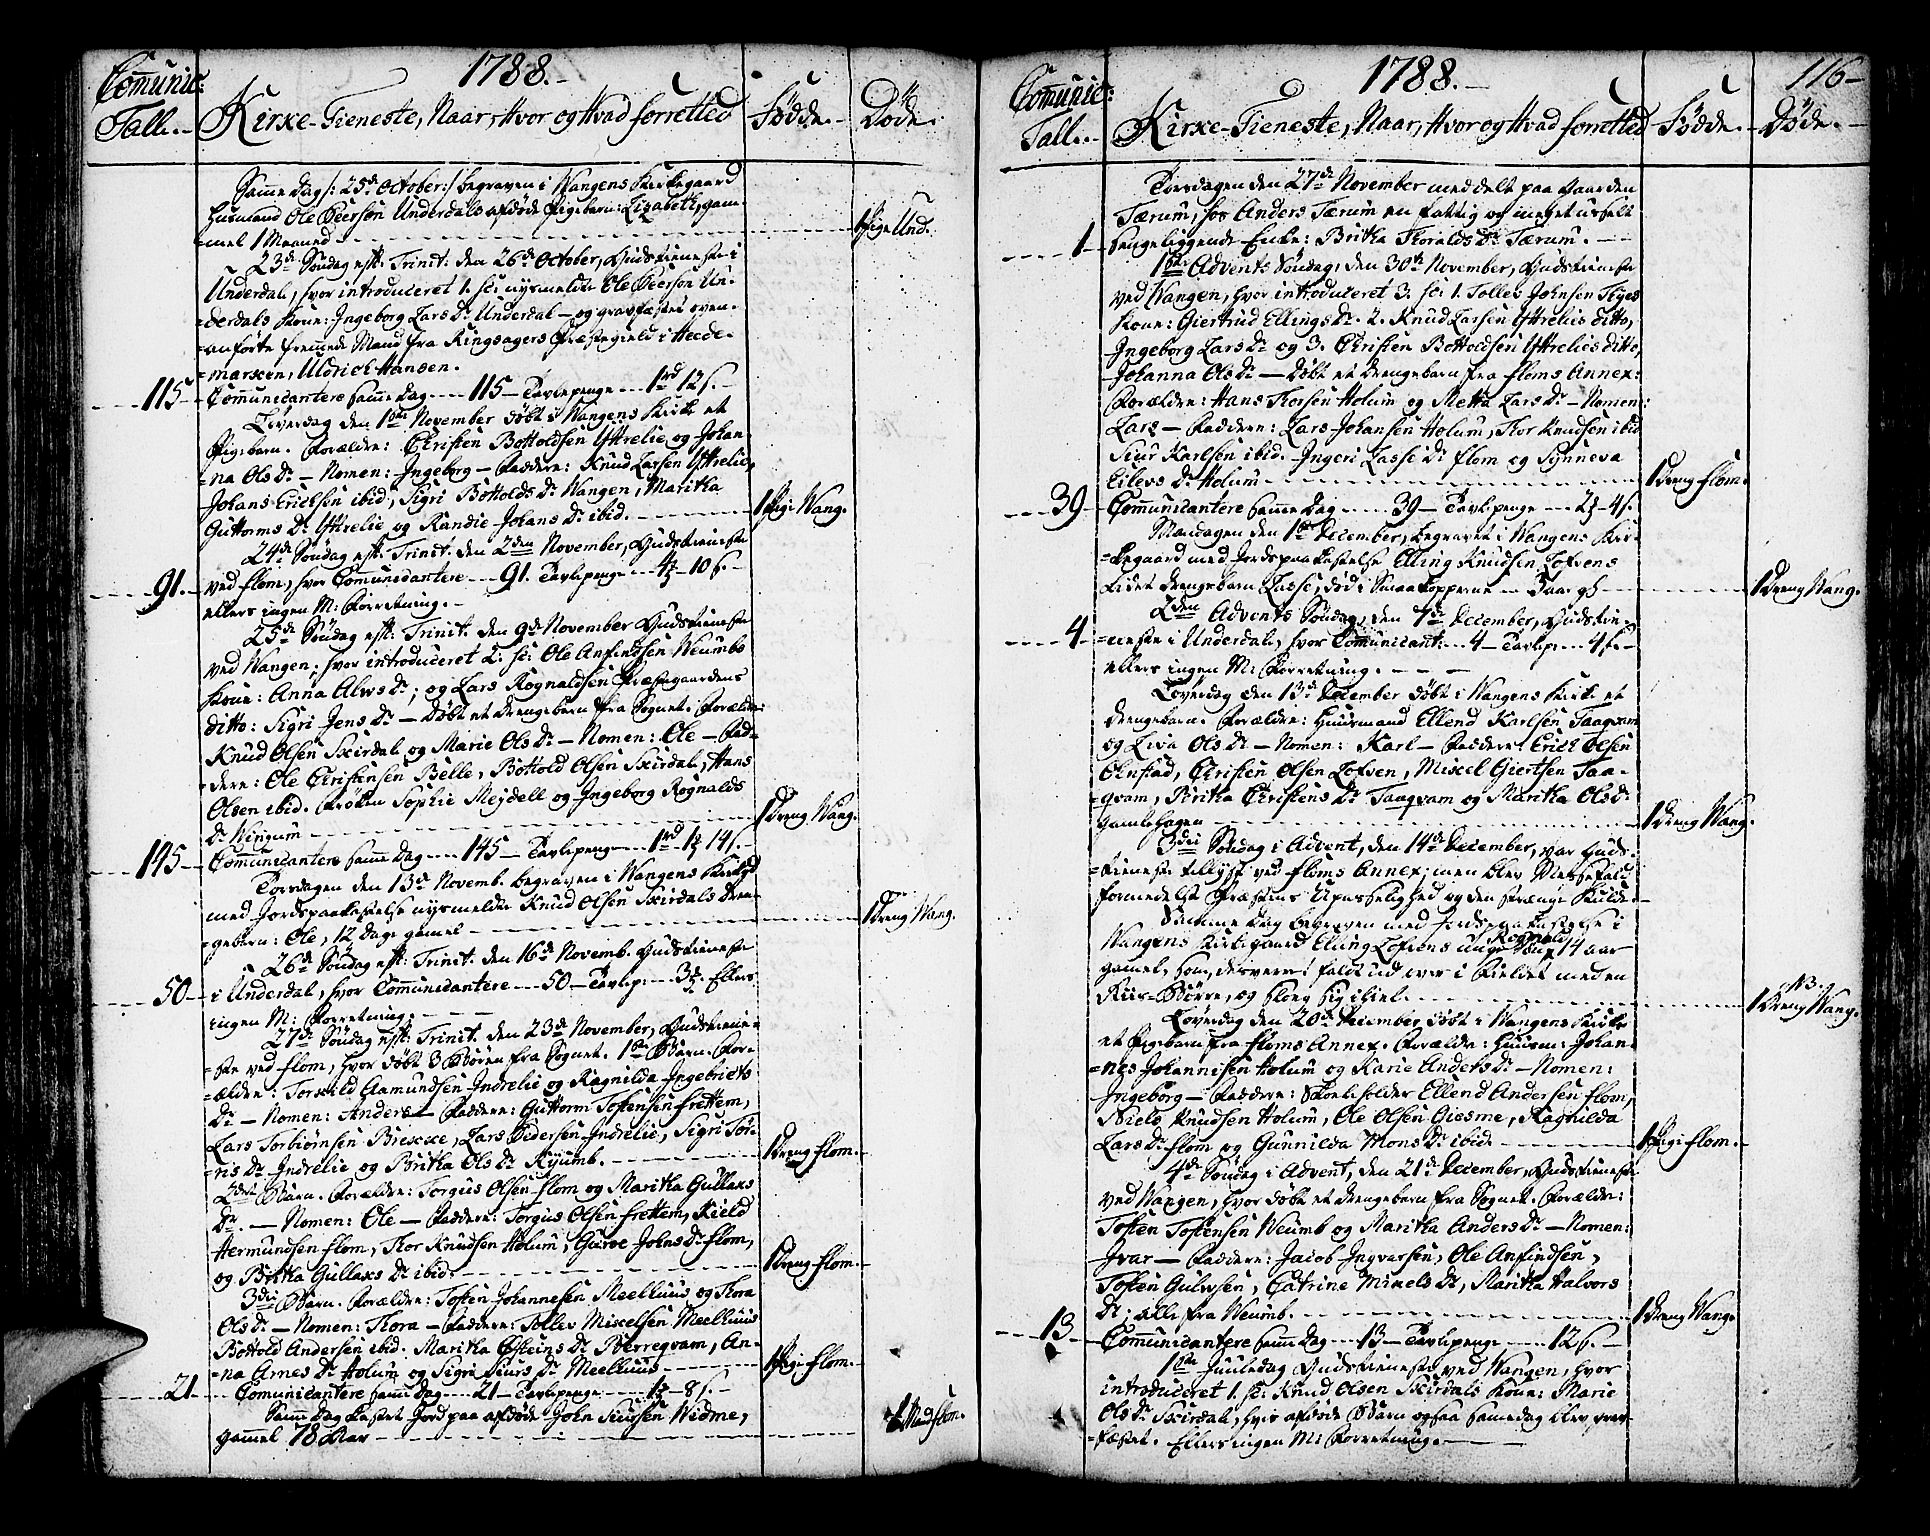 Comunic:
Tall.
1788.
Kirke-Tieneste, Naar, Hvor og Hvad forretted
Födde.
Döde.
Samme Dag /: 25de October:/ begraven i Wangens Kirkegaard
Huusmand Ole Peersön Underdals afdöde Pigebarn: Lizabeth, gam-
mel 1 Maaned
1 Pige Und.
23de Söndag eft. Trinit. den 26de October, Gudstieneste i
Underdal, hvor introduceret 1. sc: nysmeldte Ole Peersön Un-
=derdals Kone: Ingeborg Lars Dr Underdal — og gravfæstet oven-
=anförte fremmede Mand fra Ringsagers Præstegield i Hede-
marken, Uldrich Hansen.
115 Communicantere samme Dag 115 — Tavlepenge 1rd 12 s.
Löverdag den 1ste November döbt i Wangens Kirke et
Pigebarn. Forældre: Christen Bottoldsen Yttrelie og Johan-
na Ols Dr — Nomen: Ingeborg — Faddere: Knud Larsen Yttrelie,
Johans Erichsen ibid, Sigri Bottolds Dr Wangen, Maritha
Guttorms Dr Yttrelie og Randie Johans Dr ibid.
1 Pige Wang.
24de Söndag eft. Trinit. den 2den November, Gudstieneste
91. ved Flom, hvor Communicantere 91. Tavlepenge 4 — 10 s.
ellers ingen M: Forretning.
25de Söndag eft. Trinit. den 9de November Gudstieneste
ved Wangen, hvor introduceret 2. sc: Ole Anfindsen Neumbs
Kone: Anna Alws Dr; og Lars Rognaldsen Præstegaardens
ditto: Sigri Jens Dr — Döbt et Drengebarn fra Sognet. Forældre:
Knud Olsen Skirdal og Marie Ols Dr — Nomen: Ole — Fad-
dere: Ole Christensen Belle, Bottold Olsen Skirdal, Hans
Olsen ibid. Fröken Sophie Mejdell og Ingeborg Rognalds
Dr Winjum
1 Dreng Wang.
145 Communicantere samme Dag 145 — Tavlepenge 1rd 1 14 s.
Torsdagen den 13de Novemb. begraven i Wangens Kirkegd
med Jordspaakastelse nysmeldte Knud Olsen Skirdals Dren-
gebarn: Ole, 12 Dage gamel
1 Dreng Wang.
26de Söndag eft. Trinit. den 16de Novemb. Gudstieneste
50 i Underdal, hvor Communicantere 50 — Tavlep: 3 Ellers
ingen M: Forretning.
27de Söndag eft. Trinit. den 23de November, Gudstiene-
ste ved Flom, hvor döbt 3 Börn fra Sognet. 1ste Barn. For-
ældre: Torkild Aamundsen Indrelie og Ragnilda Ingebrets
Dr — Nomen: Anders — Faddere: Guttorm Tostensen Frettem,
Lars Torbiörnsen Brekke, Lars Pedersen Indrelie, Sigri Tör-
ris Dr Indrelie og Britha Ols Dr Ryumb.
1 Dreng Flom.
2det Barn. Forældre: Torgus Olsen Flom og Maritha Gullaks
Dr. — Nomen: Ole — Faddere: Torgus Olsen Frettem, Kield
Hermundsen Flom, Thor Knudsen Holum, Guroe Johns Dr Flom,
og Britha Gullaks Dr ibid.
1 Dreng Flom.
3die Barn. Forældre: Tosten Johannesen Meelhuus og Thora
Ols Dr — Nomen: Thora — Faddere: Tollev Mikelsen Meelhuus
Bottold Andersen ibid. Maritha Östeins Dr Berreqvam, An-
na Arnes Dr Holum og Sigri Siurs Dr Meelhuus
1 Pige Flom.
21 Communicantere samme Dag 21 — Tavlepenge 1 — 8 s.
Samme Dag kastet Jord paa afdöde John Siursen Widme,
gammel 78 Aar
1 Mand Flom.
Comunic:
Tall.
1788.
Kirke-Tieneste, Naar, Hvor og Hvad forretted
Födde.
116
Döde.
Torsdagen den 27de November meddelt paa Gaarden
Tærum, hos Anders Tærum en fattig og meget usselt
1 sengeliggende Enke: Britha Thoralds Dr Tærum.
1ste Advents Söndag, den 30te November, Gudstieneste
ved Wangen, hvor introduceret 3. sc: 1. Tollev Johnsen Styes
Kone: Giertrud Ellings Dr. 2. Knud Larsen Yttrelies ditto,
Ingeborg Lars Dr og 3. Christen Bottoldsen Yttrelies ditto,
Johanna Ols Dr — Döbt et Drengebarn fra Floms Annex:
Forældre: Hans Thorsen Holum og Metta Lars Dr — Nomen:
Lars — Faddere: Lars Johansen Holum, Thor Knudsen ibid
Siur Karlsen ibid. Ingeri Lasse Dr Flom og Synneva
Eilevs Dr Holum
1 Dreng Flom.
39 Communicantere samme Dag 39 — Tavlepenge 2 4 s.
Mandagen den 1ste December, begravet i Wangens Kir-
kegaard med Jordspaakastelse Elling Knudsen Lofvens
lidet Drengebarn Lasse, död i Smaakopperne
1 Dreng Wang.
2den Advents Söndag, den 7de December, Gudstie-
4 neste i Underdal, hvor Communicant: 4 — Tavlep: 4 s.
ellers ingen M: Forretning.
Löverdag den 13de December döbt i Wangens Kirke et
Drengebarn. Forældre: Huusmand Ellend Karlsen Taaqvam
og Liva Ols Dr — Nomen: Karl — Faddere: Erich Olsen
Onstad, Christen Olsen Lofven, Mikel Giertsen Taa-
qvam, Britha Christens Dr Taaqvam og Maritha Ols Dr
Gamlehagen
1 Dreng Wang.
3die Söndag i Advent, den 14de December, var Guds-
tieneste tillyst ved Floms Annex; men blev Messefald
formedelst Præstens Upasselighed og den strænge Kulde.
Samme Dag begraven med Jordspaakastelse i
Wangens Kirkegaard Elling Lofvens unge Sön Rognald 14 aar
gamel, som, desværre! faldt ud over i Fieldet med en
Riis-Börre, og slog sig ihiel.
NB.
1 Dreng Wang.
Löverdag den 20de December döbt i Wangens Kirke
et Pigebarn fra Floms Annex. Forældre: Huusm: Johan-
nes Johannesen Holum og Karie Anders Dr — Nomen:
Ingeborg — Faddere: Skoleholder Ellend Andersen Flom,
Niels Knudsen Holum, Ole Olsen Giesme, Ragnilda
Lars Dr Flom og Gunnilda Mons Dr ibid
1 Pige Flom.
4de Söndag i Advent, den 21de December, Gudstieneste
ved Wangen, hvor döbt et Drengebarn fra Sognet. Forældre:
Tosten Tostensen Neumb og Maritha Anders Dr — Nomen:
Ivar — Faddere: Jacob Ingvarsen, Ole Anfindsen,
Tosten Gulvsen, Catrine Mikels Dr, Maritha Halvors
Dr; alle fra Neumb.
1 Dreng Wang.
13 Communicantere samme Dag 13 — Tavlepenge 12 s.
1ste Juuledag Gudstieneste ved Wangen, hvor
introduceret 1. sc: Knud Olsen Skirdals Kone: Marie
Ols Dr Skirdal, hvis afdöde Barn ogsaa samme dag blev grav-
fæstet. Ellers ingen M: Forretning.